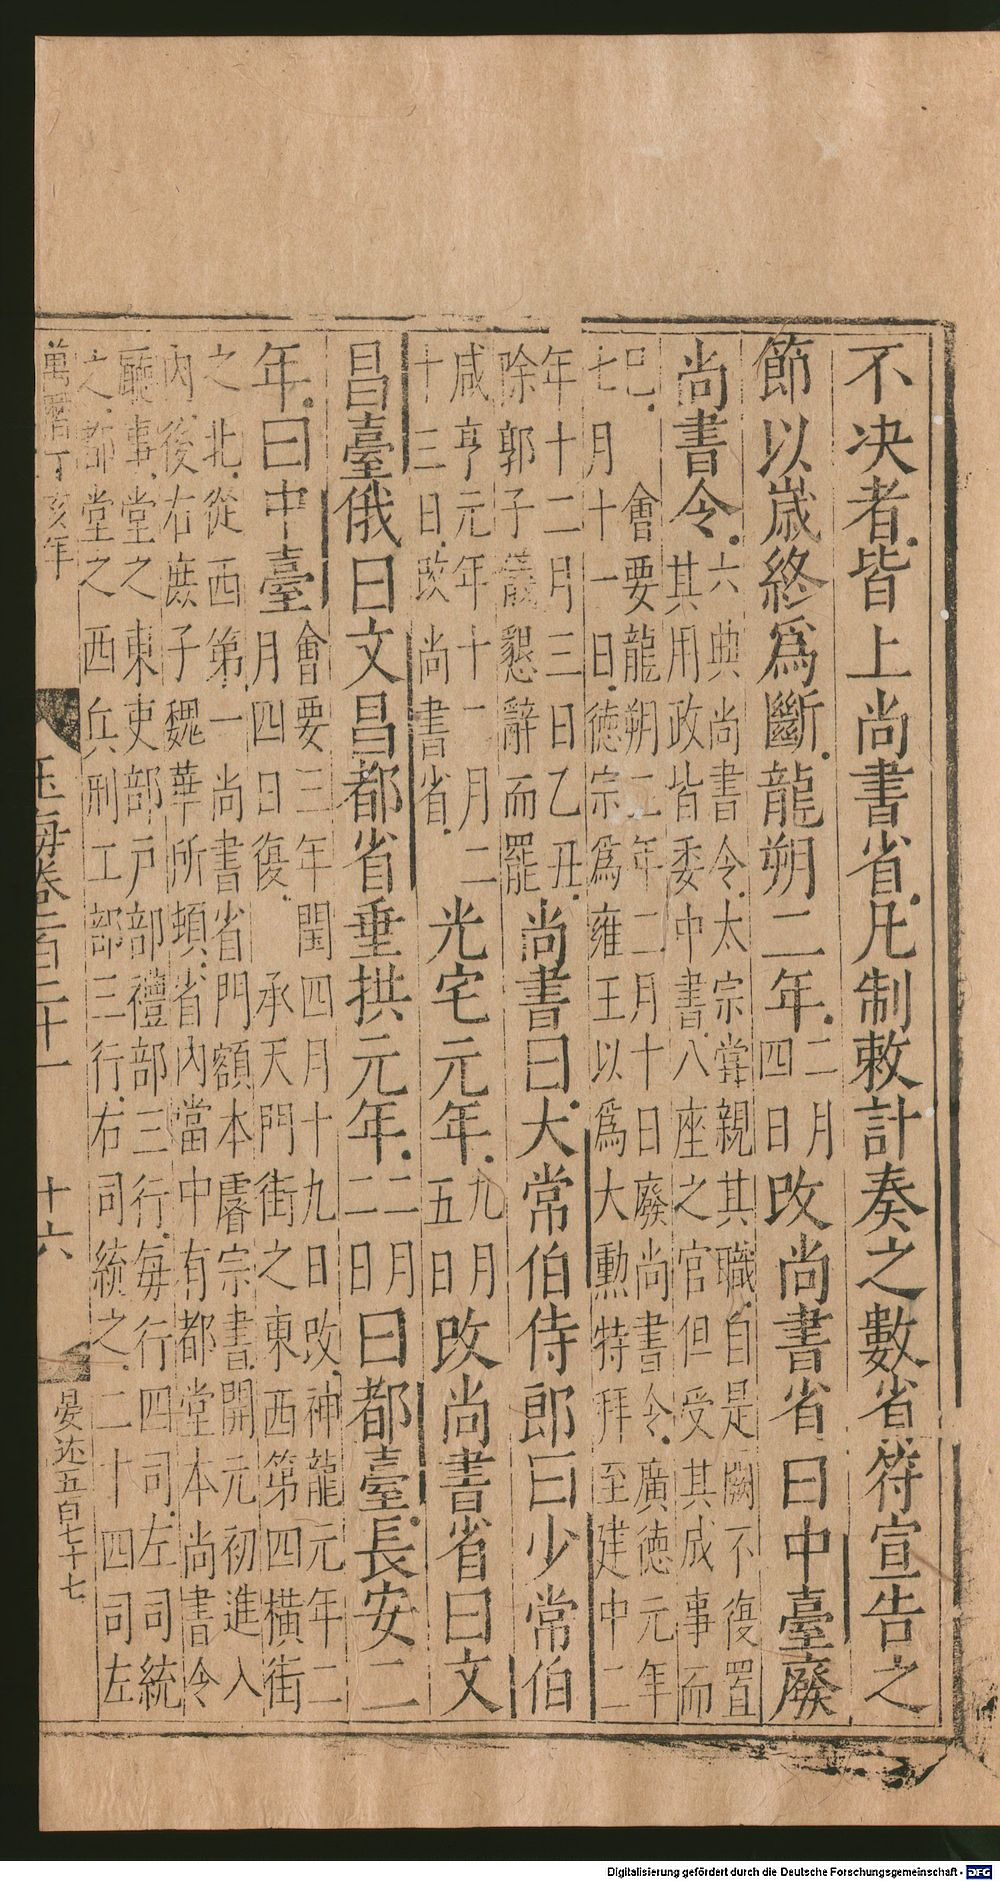 不决者皆上尚書省凡制敕計奏之數省符宣告之
節以歲終爲斷龍朔二年二月四日改尚書省曰中臺廢
尚書令六典尚書令太宗嘗親其職自是闕不復置
其用政皆委中書八座之官但受其成事而
巳會要龍朔二年二月十日廢尚書令廣德元年
七月十一日德宗爲雍王以爲大勳特拜至建中二
年十二月三日乙丑
除郭子儀懇辭而罷尚書曰大常伯侍郎曰少常伯
咸亨元年十二月二
十三日改尚書省光宅元年九月五日改尚書省曰文
昌臺俄曰文昌都省垂拱元年二月二日曰都臺長安二
年曰中臺會要三年閏四月十九日改神龍元年二
月四日復承天門街之東西第四橫街
之北從西第一尚書省門額本睿宗書開元初進入
內後右庻子魏華所頓省內當中有都堂本尚書令
廳事堂之東吏部戶部禮部三行每行四司左司統
之都堂之西兵刑工部三行右司統之二十四司左
萬曆丁亥年 玉海卷一百二十一 十六 晏述五百七十七
Digitalisierung gefördert durch die Deutsche Forschungsgemeinschaft - DFG